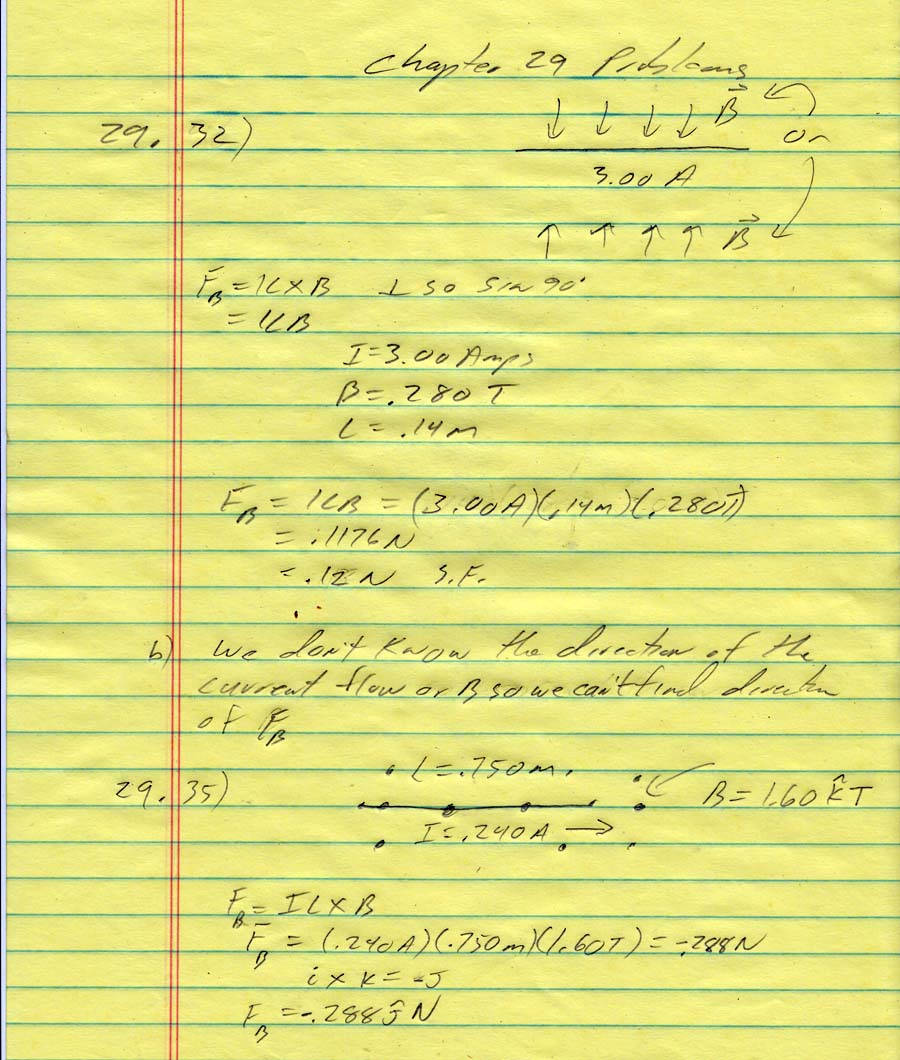 Chapter 29 Problems
29. 32)
↓ ↓ ↓ ↓ B⃗
or
3.00 A
↑ ↑ ↑ ↑ B⃗
F_B = IL×B ⊥ so sin 90°
= ILB
I = 3.00 Amps
B = .280 T
L = .14 m
F_B = ILB = (3.00A)(.14m)(.280T)
= .1176 N
= .12 N S.F.
b) we don't know the direction of the
current flow or B so we can't find direction
of F_B
29. 35)
L = .750 m.
B = 1.60 k̂ T
I = .240A →
F_B = IL × B
F_B = (.240A)(.750m)(1.60T) = .288N
i × k = -j
F_B = -.288 ĵ N